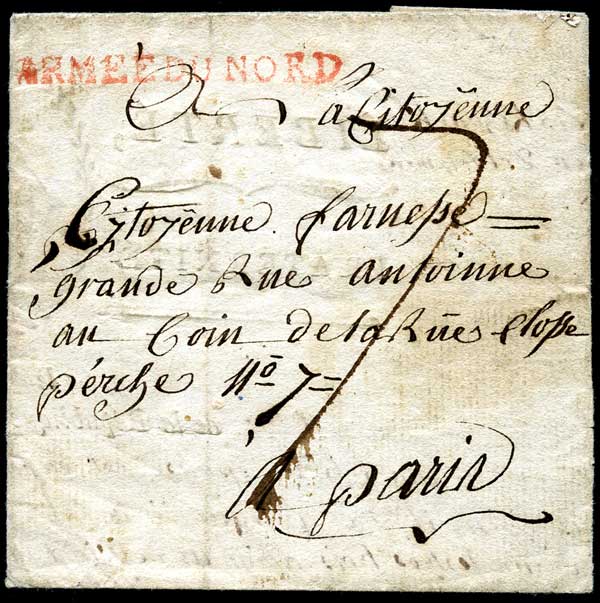 ARMÉE DU NORD
A à Citoyênne
Citoyênne farnesse =
grande Rue antoinne
au Coin de la Rüe Closse
pérche Nº 7 =
à paris